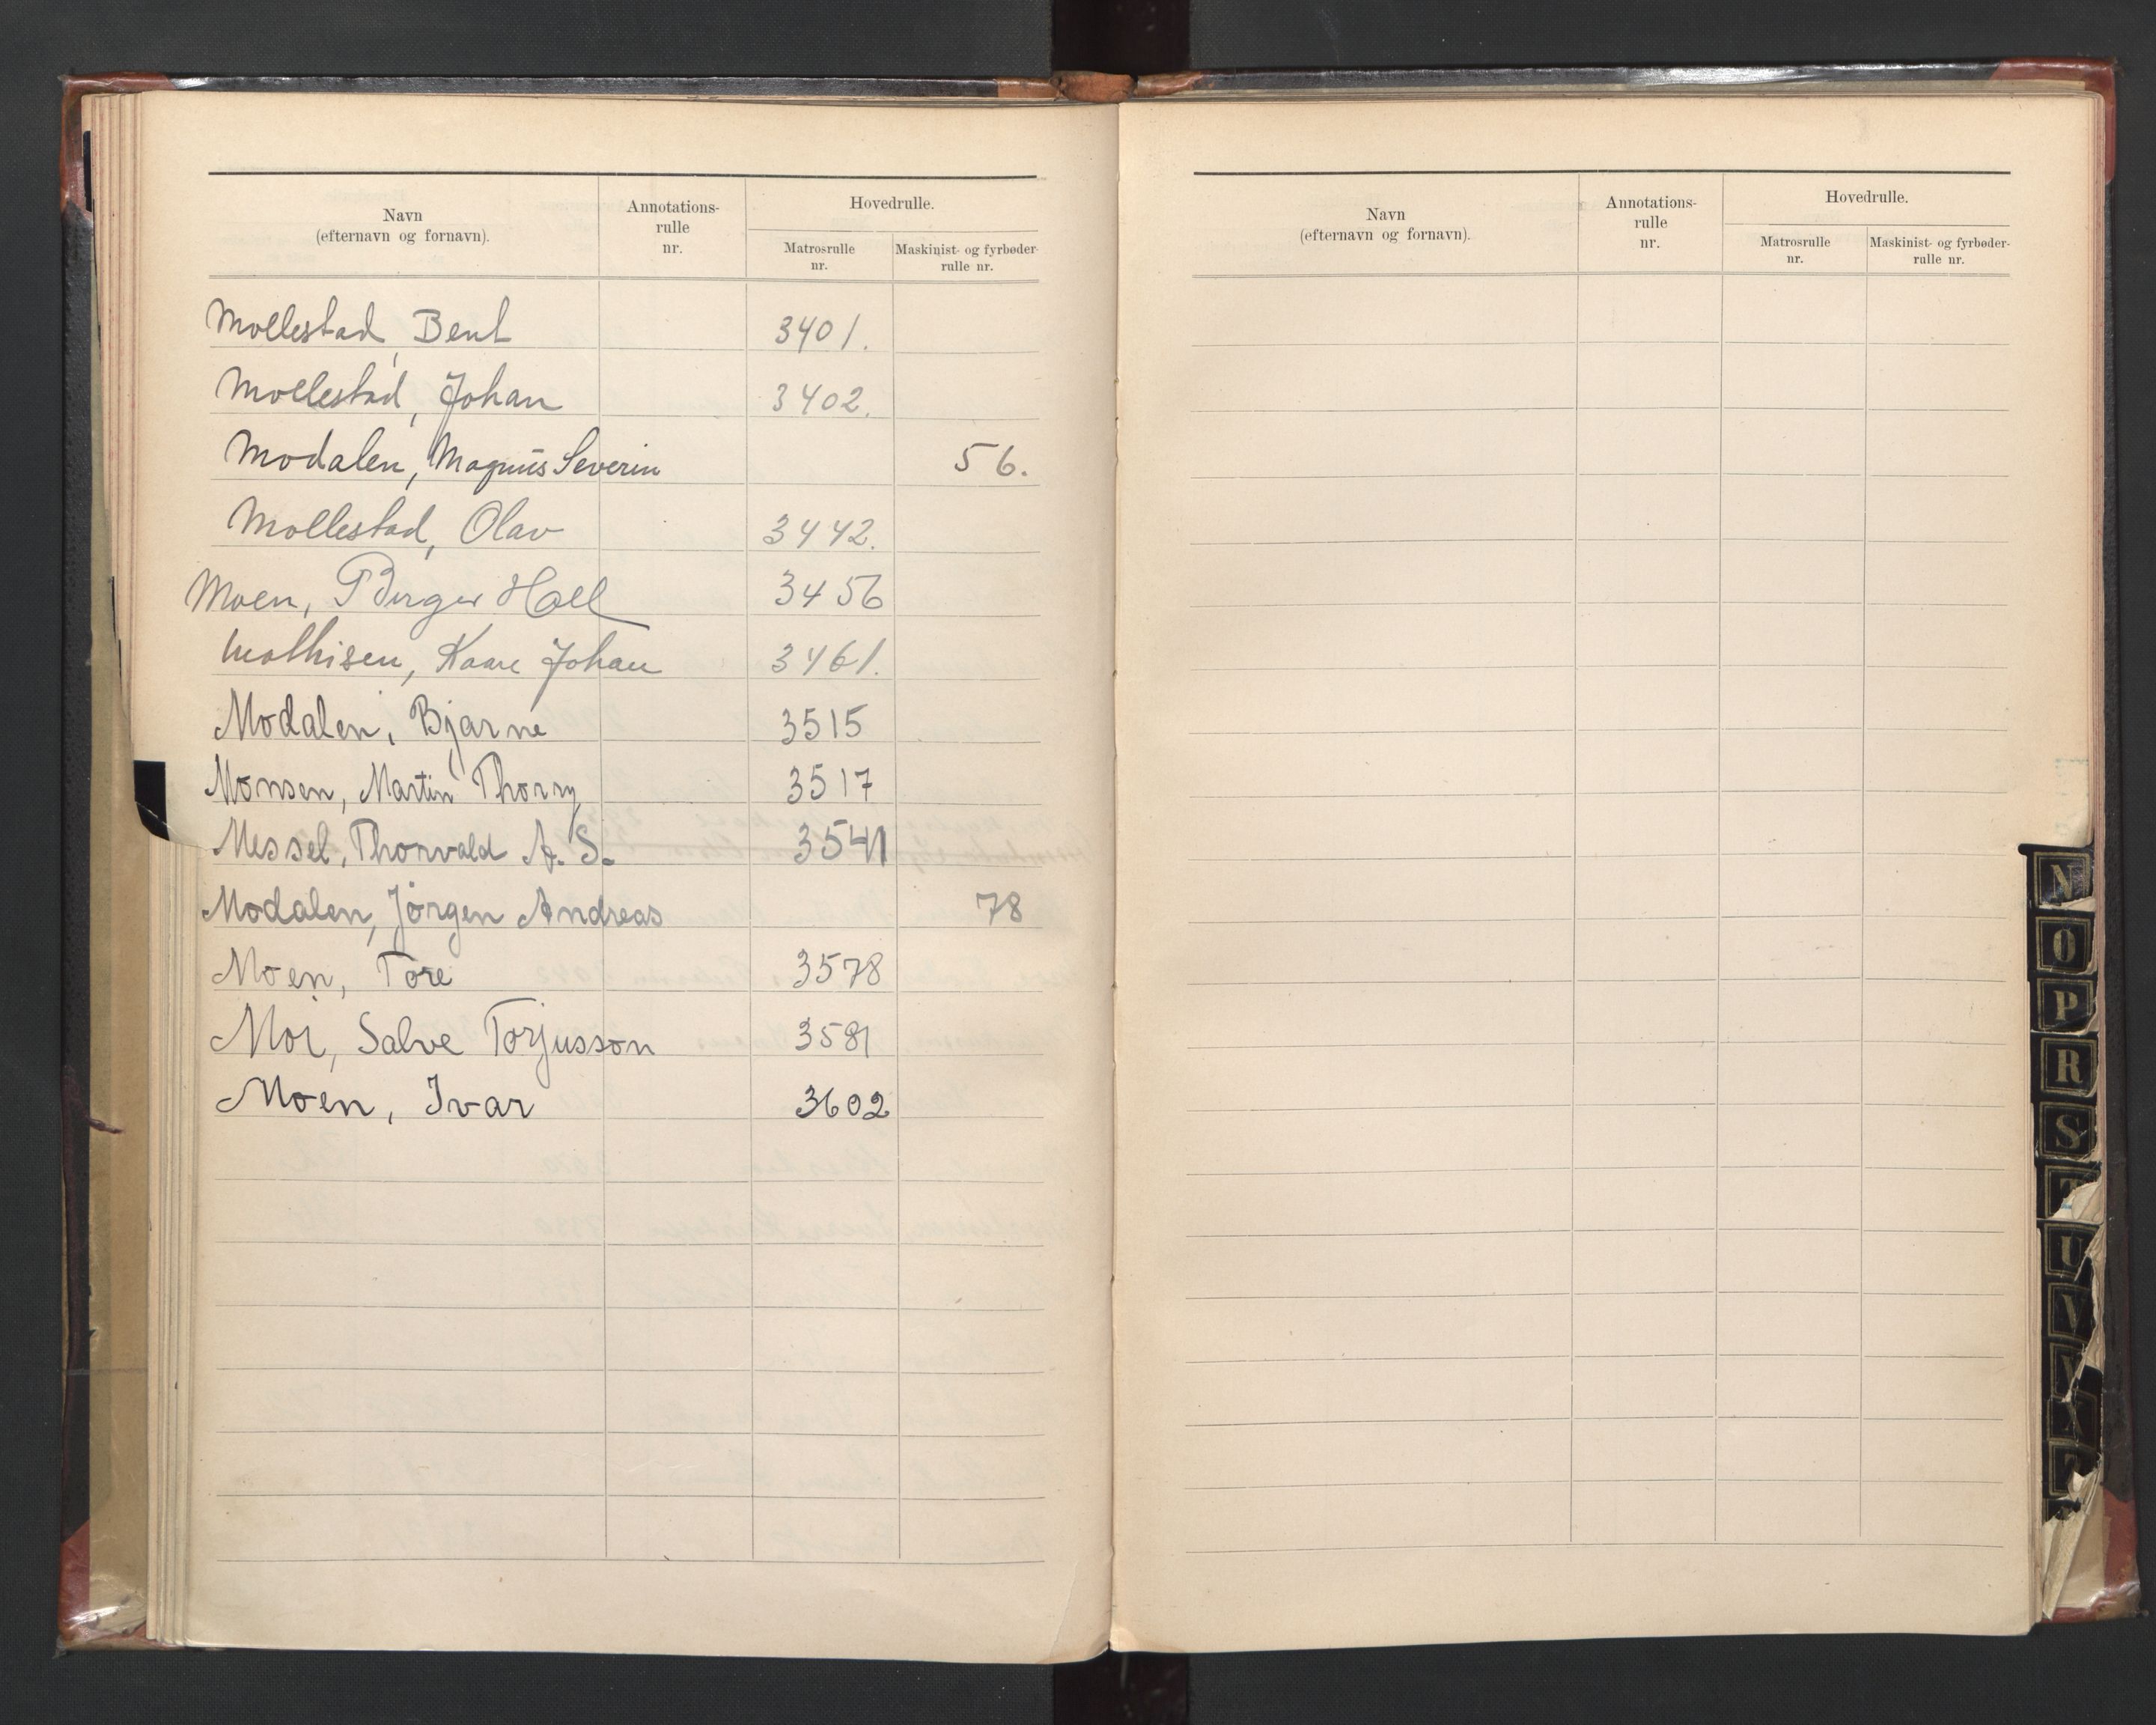 Navn
(efternavn og fornavn).
Annotations-
rulle
nr.
Hovedrulle.
Matrosrulle
nr.
Maskinist- og fyrbøder-
rulle nr.
Mollestad, Bent 3401.
Mollestad, Johan 3402.
Modalen, Magnus Severin 56.
Mollestad, Olav 3442.
Moen, Birger Holl 3456
Mathisen, Kaare Johan 3461.
Modalen, Bjarne 3515
Monsen, Martin Thorry 3517
Messel, Thorvald A. S. 3541
Modalen, Jørgen Andreas 78
Moen, Tore 3578
Moi, Salve Torjusson 3581
Moen, Ivar 3602
Navn
(efternavn og fornavn).
Annotations-
rulle
nr.
Hovedrulle.
Matrosrulle
nr.
Maskinist- og fyrbøder-
rulle nr.
N
O
P
R
S
T
U
V